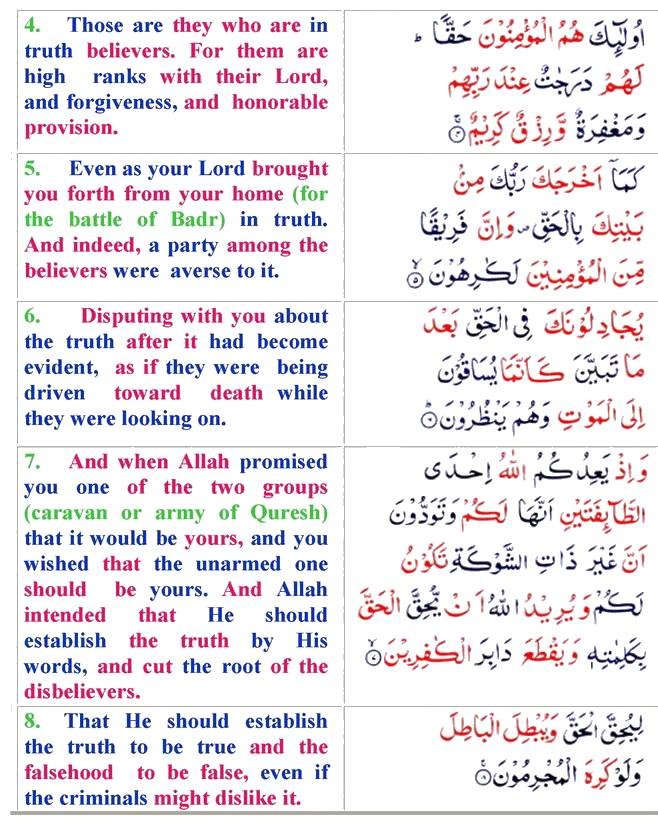 4. Those are they who are in
truth believers. For them are
high ranks with their Lord,
and forgiveness, and honorable
provision.
اُولٰٓئِكَ هُمُ الْمُؤْمِنُوْنَ حَقًّا ؕ
لَهُمْ دَرَجٰتٌ عِنْدَ رَبِّهِمْ
وَمَغْفِرَةٌ وَّرِزْقٌ كَرِيْمٌ ۞۴
5. Even as your Lord brought
you forth from your home (for
the battle of Badr) in truth.
And indeed, a party among the
believers were averse to it.
كَمَاۤ اَخْرَجَكَ رَبُّكَ مِنْۢ
بَيْتِكَ بِالْحَقِّ ۪ وَاِنَّ فَرِيْقًا
مِّنَ الْمُؤْمِنِيْنَ لَكٰرِهُوْنَ ۞۵
6. Disputing with you about
the truth after it had become
evident, as if they were being
driven toward death while
they were looking on.
يُجَادِلُوْنَكَ فِى الْحَقِّ بَعْدَ
مَا تَبَيَّنَ كَاَنَّمَا يُسَاقُوْنَ
اِلَى الْمَوْتِ وَهُمْ يَنْظُرُوْنَ ۞۶
7. And when Allah promised
you one of the two groups
(caravan or army of Quresh)
that it would be yours, and you
wished that the unarmed one
should be yours. And Allah
intended that He should
establish the truth by His
words, and cut the root of the
disbelievers.
وَاِذْ يَعِدُكُمُ اللّٰهُ اِحْدَى
الطَّآئِفَتَيْنِ اَنَّهَا لَكُمْ وَتَوَدُّوْنَ
اَنَّ غَيْرَ ذَاتِ الشَّوْكَةِ تَكُوْنُ
لَكُمْ وَيُرِيْدُ اللّٰهُ اَنْ يُّحِقَّ الْحَقَّ
بِكَلِمٰتِهٖ وَيَقْطَعَ دَابِرَ الْكٰفِرِيْنَ ۞۷
8. That He should establish
the truth to be true and the
falsehood to be false, even if
the criminals might dislike it.
لِيُحِقَّ الْحَقَّ وَيُبْطِلَ الْبَاطِلَ
وَلَوْ كَرِهَ الْمُجْرِمُوْنَ ۞۸